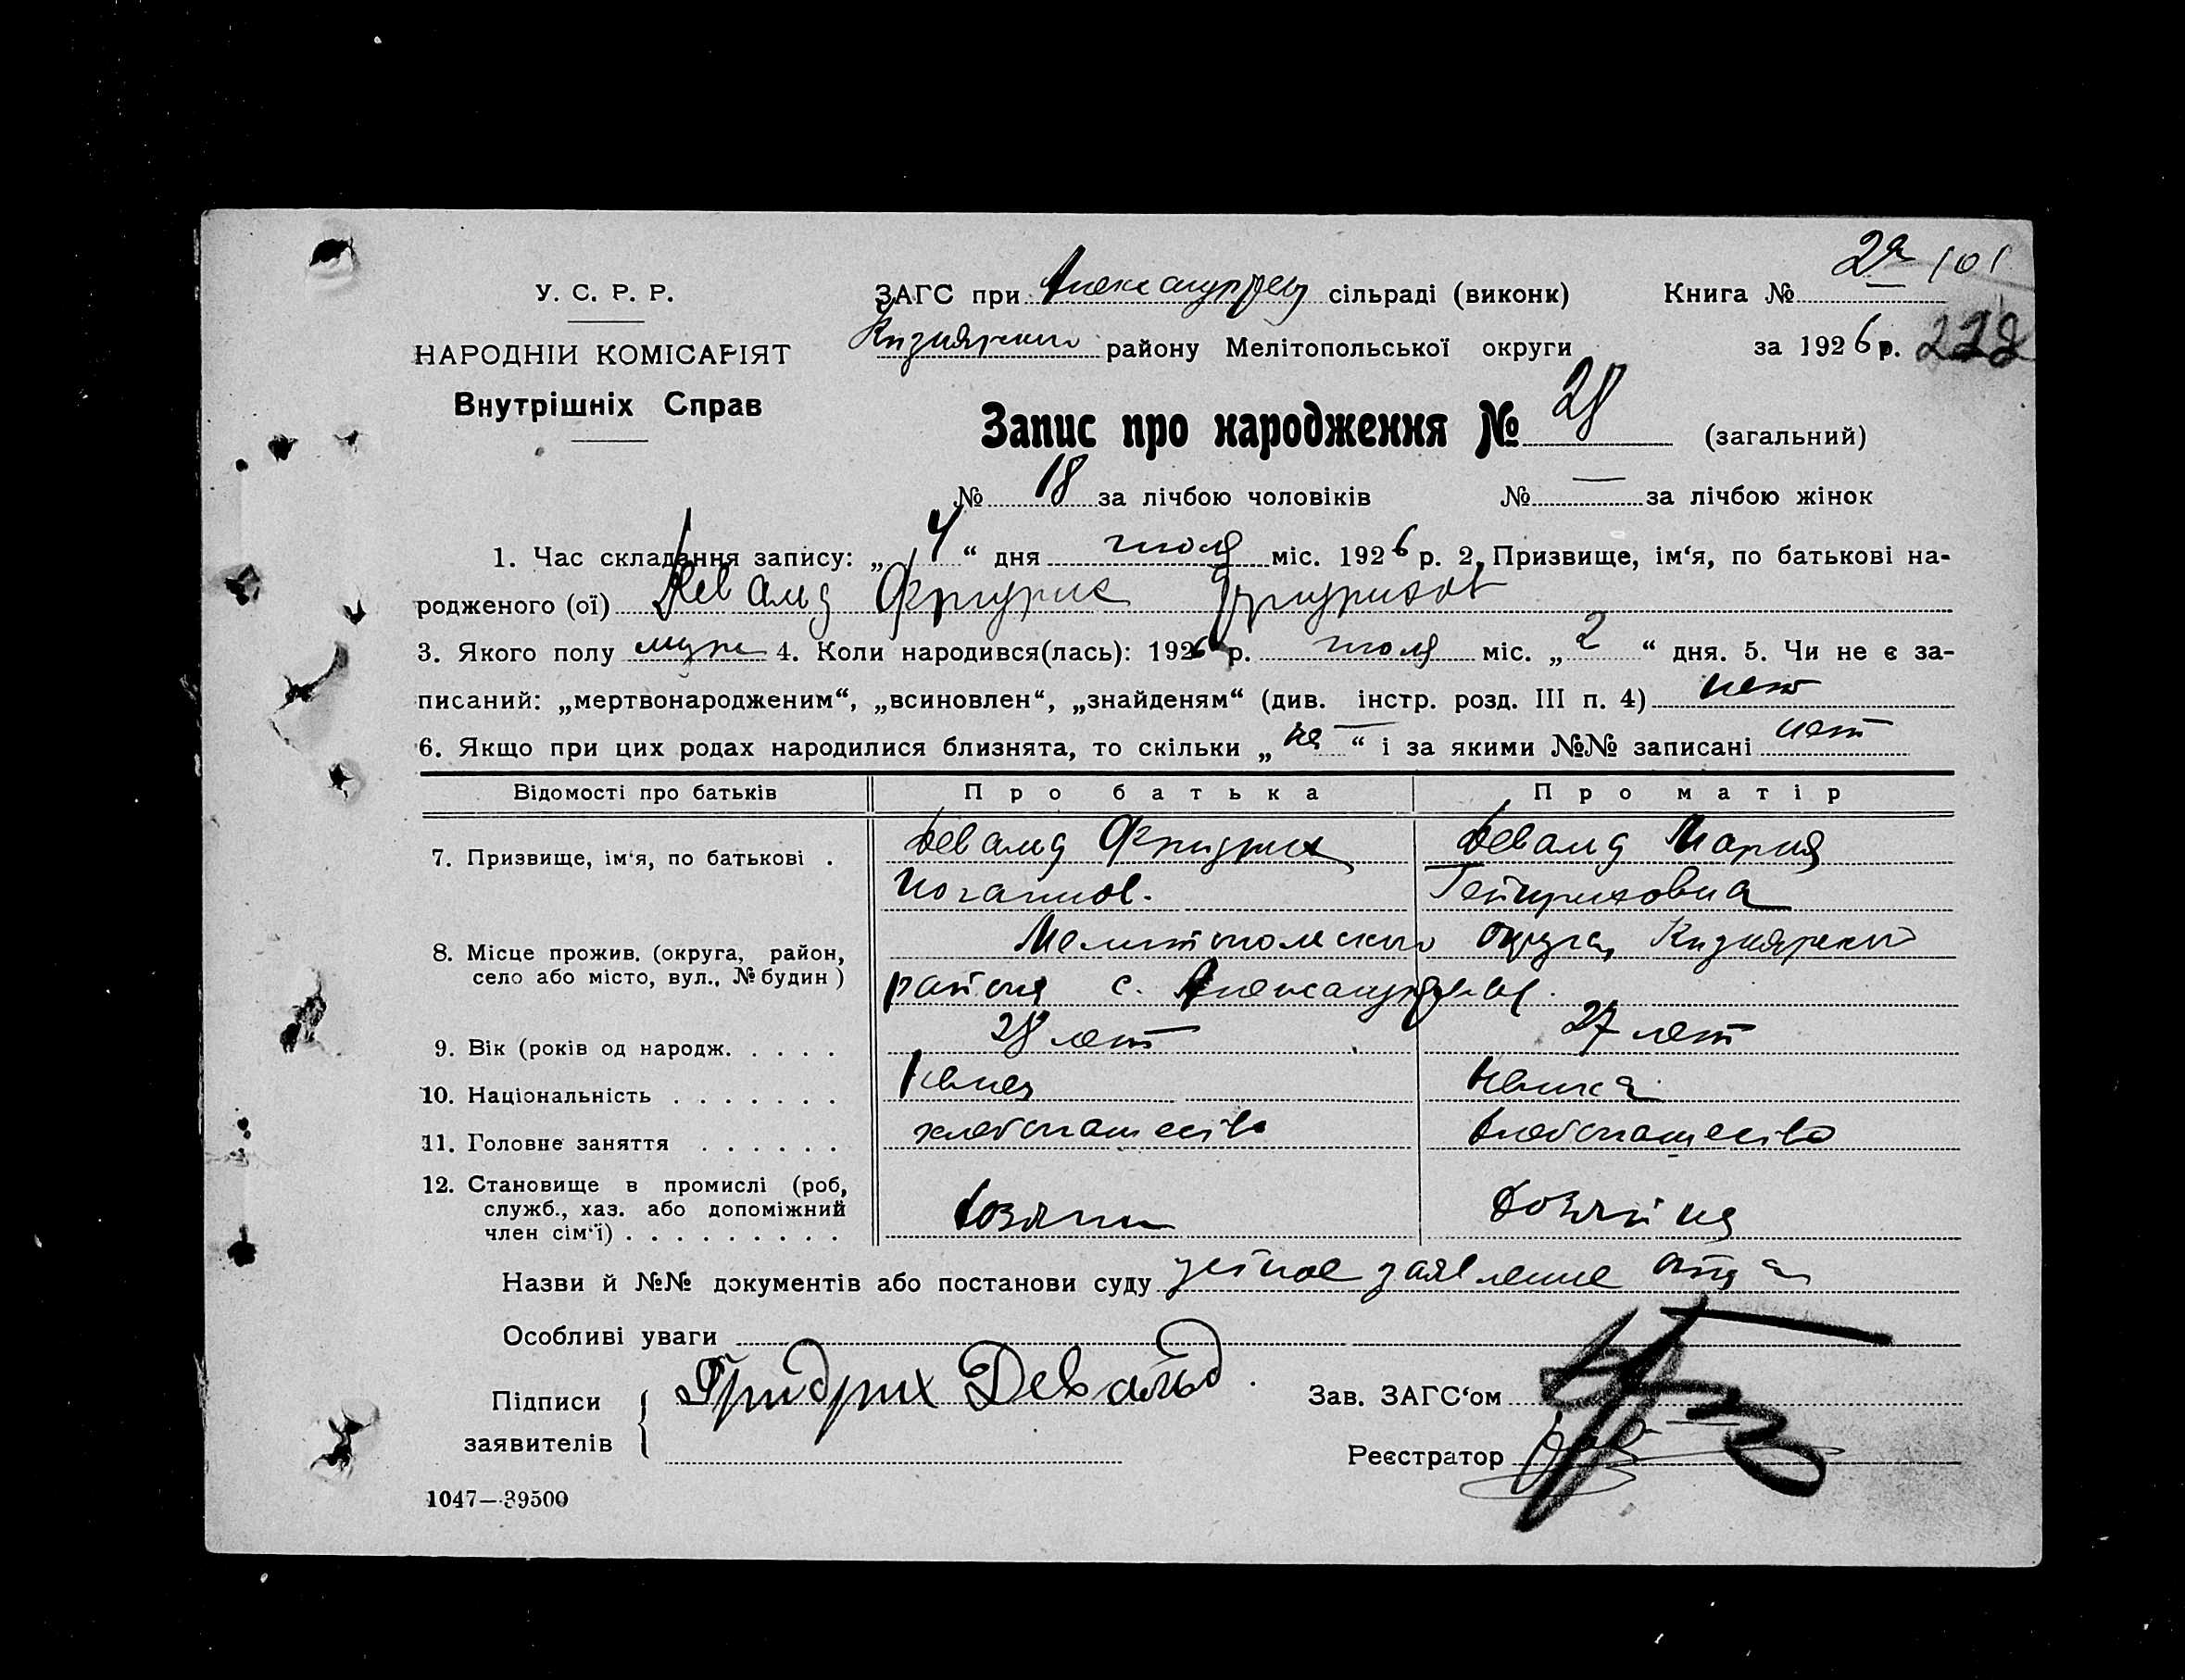 2я 101
У. С. Р. Р. ЗАГС при сільраді (виконк) Книга №
НАРОДНІЙ КОМІСАРІЯТ району Мелітопольської округи за 1926 р. 228
Внутрішніх Справ
Запис про народження № 28 (загальний)
№ 18 за лічбою чоловіків № — за лічбою жінок
1. Час складання запису: „ 4 “ дня июля міс. 1926 р. 2. Призвище, ім‘я, по батькові на-
родженого (ої) Девальд Фридрих Фридрихов
3. Якого полу муж 4. Коли народився(лась): 1926 р. июля міс. „ 2 “ дня. 5. Чи не є за-
писаний: „мертвонародженим“, „всиновлен“, „знайденям“ (див. інстр. розд. III п. 4) нет
6. Якщо при цих родах народилися близнята, то скільки „ “ і за якими №№ записані нет
Відомості про батьків Про батька Про матір
7. Призвище, ім‘я, по батькові . Девальд Фридрих Девальд Мария
Иоганнов. Гейнриховна
8. Місце прожив. (округа, район, Мелитопольского округа,
село або місто, вул., № будин ) района с.
9. Вік (років од народж. . . . . 28 лет 27 лет
10. Національність . . . . . . . Немец Немка
11. Головне заняття . . . . . . хлебопашество хлебопашество
12. Становище в промислі (роб,
служб., хаз. або допоміжний Хозяин Хозяйка
член сім‘ї) . . . . . . . . .
Назви й №№ документів або постанови суду устное заявление отца
Особливі уваги
Підписи Фридрих Девальд. Зав. ЗАГС‘ом
заявителів Реєстратор
1047—39500